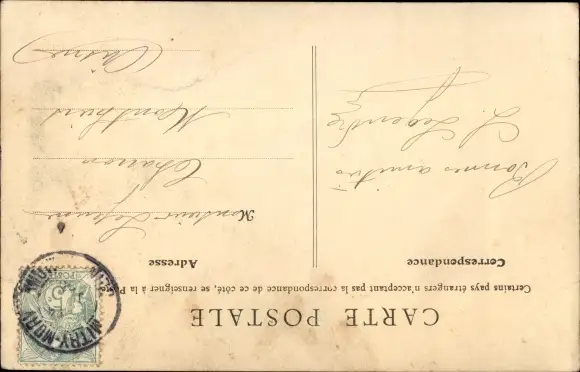 CARTE POSTALE
Certains pays étrangers n'acceptant pas la correspondance de ce côté, se renseigner à la P
Correspondance
Bonnes amitiés
L. Legendre
Adresse
Monsieur
Monthiers
Aisne
MITRY-MORY